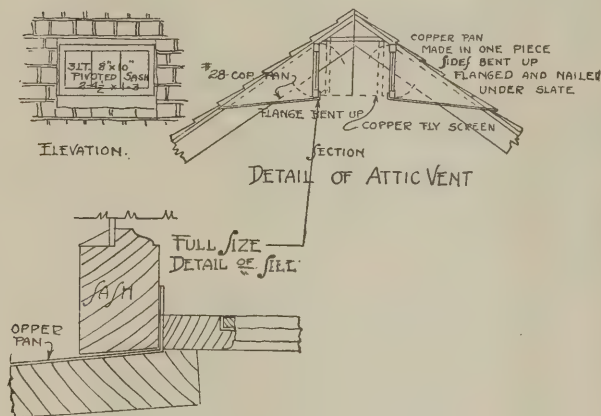 3 LT. 8"x10"
PIVOTED SASH
2-4½ x 1-3
ELEVATION.
#28-COP. PAN
FLANGE BENT UP
COPPER PAN
MADE IN ONE PIECE
SIDES BENT UP
FLANGED AND NAILED
UNDER SLATE
COPPER FLY SCREEN
SECTION
DETAIL OF ATTIC VENT
FULL SIZE
DETAIL OF SILL
SASH
OPPER
PAN